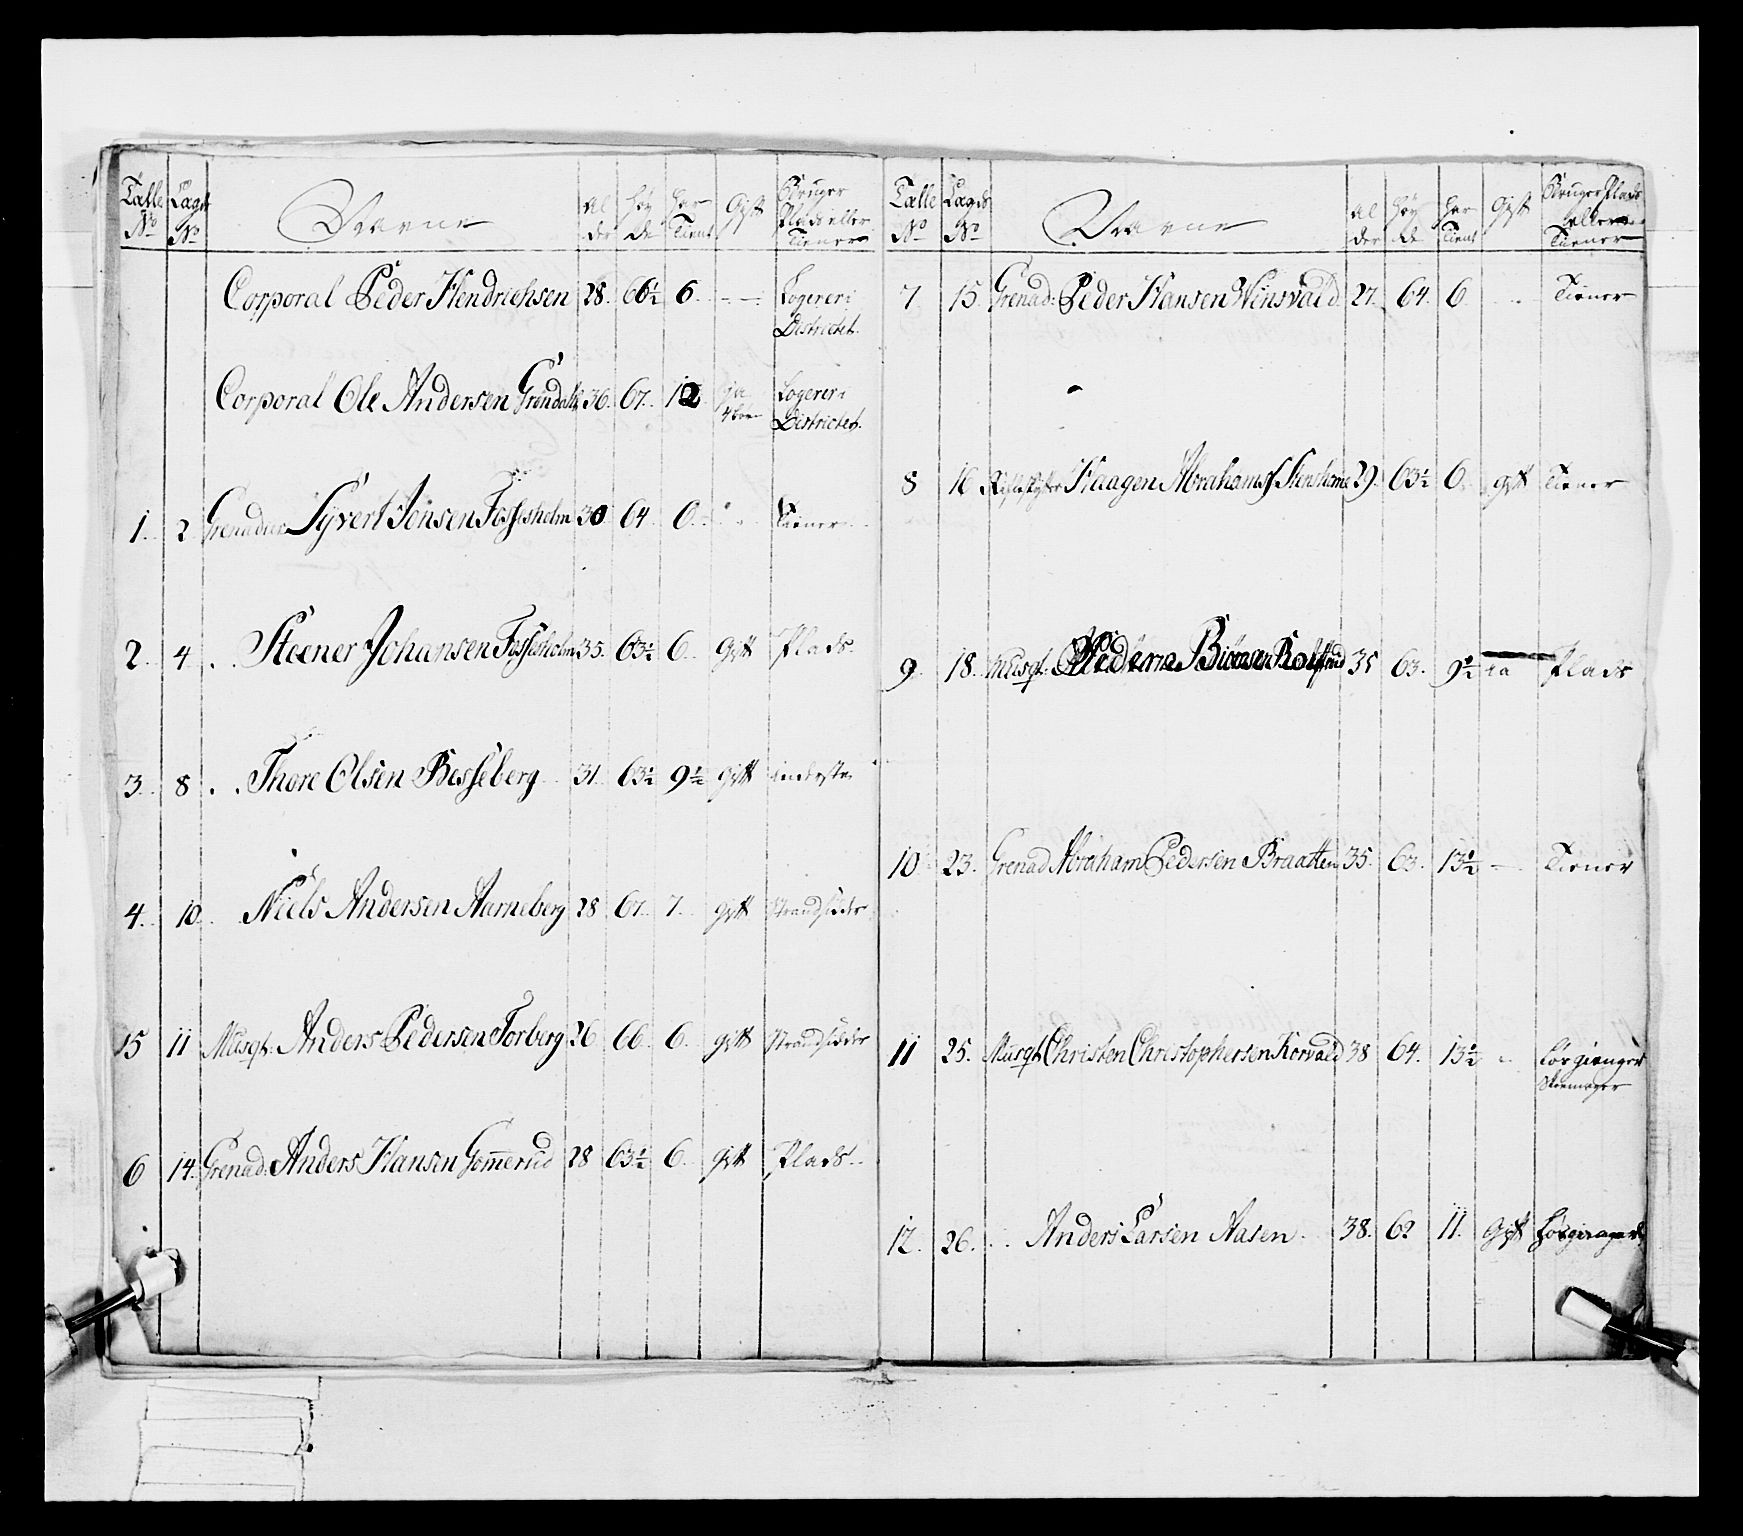 Tælle No Lægd No Navne Al der Høy de Har Tient Gift Bruger Plads eller Tiener
Corporal Peder Hendrichsen 28. 66½ 6. - - Logerer i
Districtet.
Corporal Ole Andersen Grøndahl 36. 67. 12 ja Logerer i
4 børn Districtet.
1. 2 Grenadeer Syvert Jonsen Fossesholm 30 64 6. Tiener
2. 4 . . Steener Johansen Fossesholm 35. 63½ 6. Gift Plads
3. 8 . . Thore Olsen Besseberg 31. 63½ 9½ Gift inderste
4. 10. Niels Andersen Aarneberg 28 67. 7. gift Strandsider
15 11 Musqt: Anders Pedersen Torberg 26 66. 6. gift Strandsider
6 14. Grenad: Anders Hansen Gomerud 28 63½ 6. gift Plads
Tælle No Lægds No Navne Al der Høy de Har Tient Gift Bruger Plads eller Tiener
7 15. Grenad: Peder Hansen Winsvald. 27. 64. 6. Tiener
8 16 Haagen Abrahams. Stenshorne 29. 63½ 6. gift Tiener
9. 18. Musqt: 35 63. 9½ Plads
10 23. Grenad Abraham Pedersen Braatten 35. 63. 13½ - Tiener
11 25. Musqt: Christen Christophersen Korvald 38 64. 13½ Forgienger
Skoemager
12. 26. . . Anders Larsen Aasen. 38. 62 11. Gift Forgienger